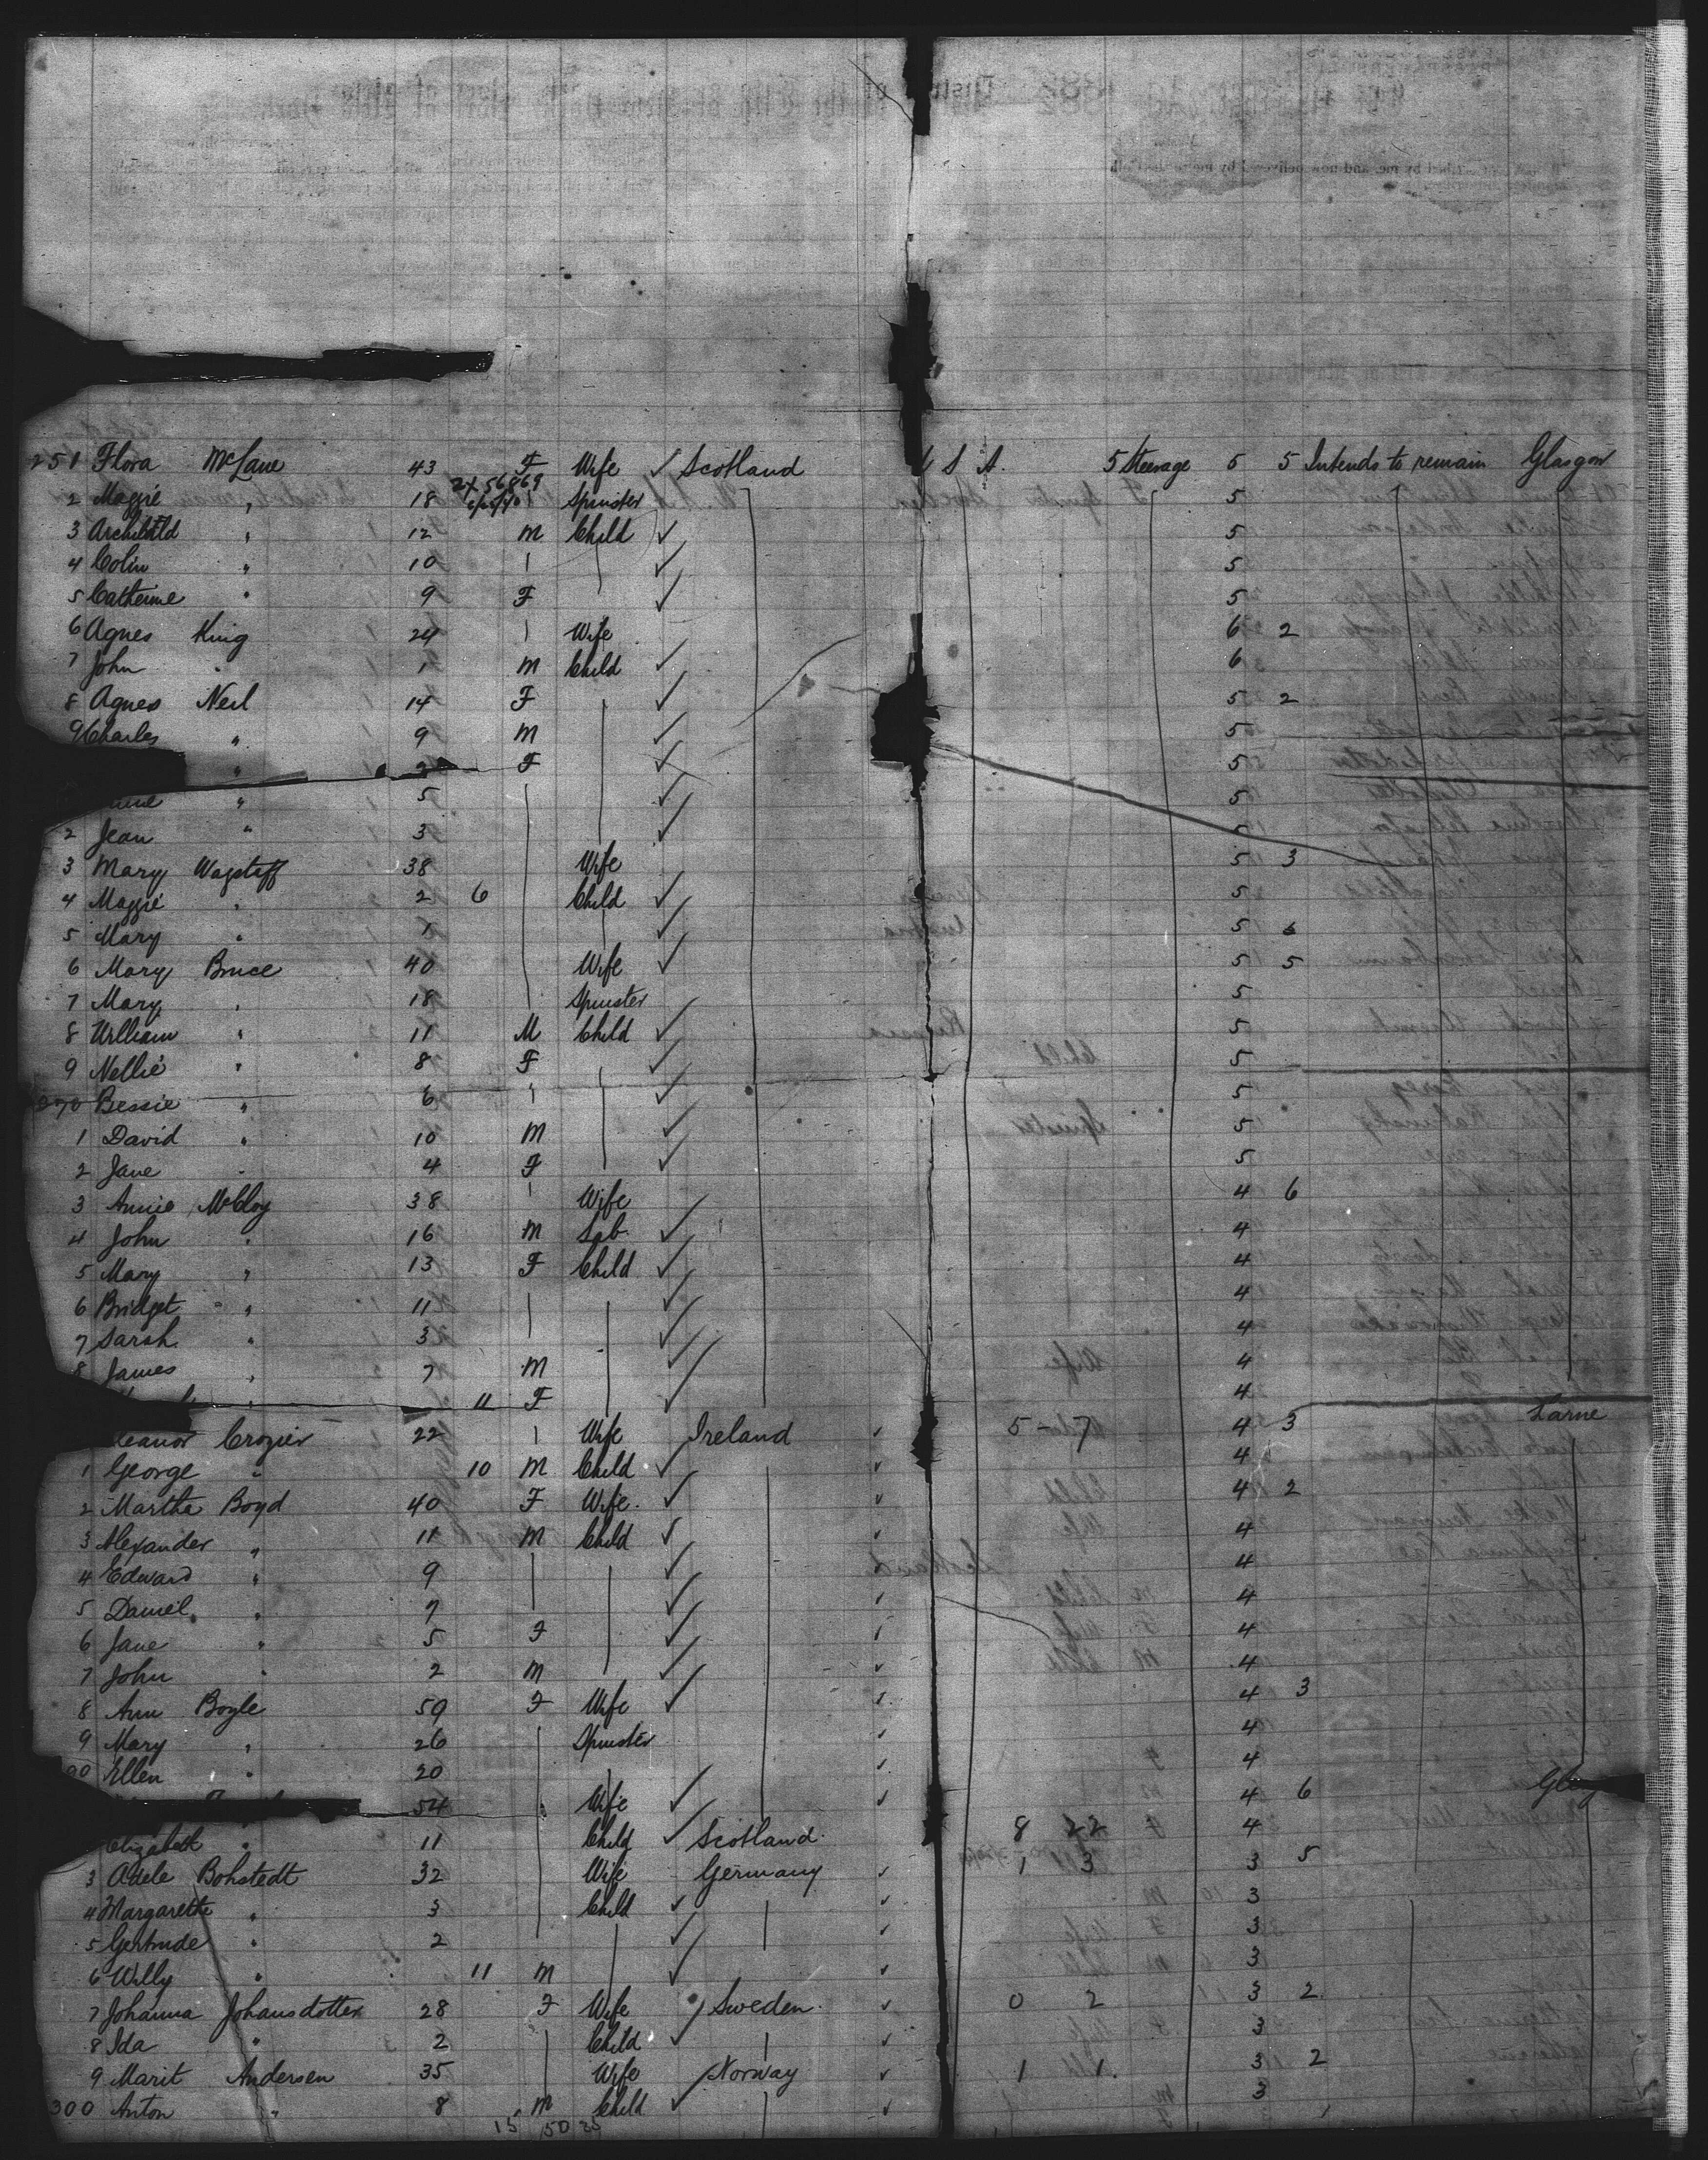 251 Flora McLane 43 F Wife ✓ Scotland U S A. 5 Steerage 5 5 Intends to remain Glasgow
2 Maggie " 18 2x56869 Spinster 5
3 Archibald " 12 M Child ✓ 5
4 Colin " 10 ✓ 5
5 Catherine " 9 F ✓ 5
6 Agnes King 24 Wife 6 2
7 John " 1 M Child ✓ 6
8 Agnes Neil 14 F ✓ 5 2
9 Charles " 9 M ✓ 5
" F ✓ 5
" 5 ✓ 5
2 Jean " 3 ✓ 5
3 Mary Wagstaff 38 Wife 5 3
4 Maggie " 2 6 Child ✓ 5
5 Mary " 1 ✓ 5
6 Mary Bruce 40 Wife ✓ 5 5
7 Mary " 18 Spinster 5
8 William " 11 M Child ✓ 5
9 Nellie " 8 F ✓ 5
270 Bessie " 6 ✓ 5
1 David " 10 M ✓ 5
2 Jane " 4 F ✓ 5
3 Annie McCloy 38 Wife 4 6
4 John " 16 M Lab. ✓ 4
5 Mary " 13 F Child ✓ 4
6 Bridget " 11 ✓ 4
7 Sarah " 3 ✓ 4
8 James " 7 M ✓ 4
" 11 F ✓ 4
Eleanor Crozier 22 Wife Ireland ✓ 5 - 7 4 3 Larne
1 George " 10 M Child ✓ ✓ 4
2 Martha Boyd 40 F Wife. ✓ ✓ 4 2
3 Alexander " 11 M Child ✓ 4
4 Edward " 9 ✓ 4
5 Daniel " 7 ✓ 4
6 Jane " 5 F ✓ 4
7 John " 2 M ✓ ✓ 4
8 Ann Boyle 50 F Wife ✓ 4 3
9 Mary " 26 Spinster ✓ 4
90 Ellen " 20 4
54 Wife ✓ ✓ 4 6
Elizabeth " 11 Child ✓ Scotland 8 22 4
3 Adele Bohstedt 32 Wife Germany ✓ 1 3 3 5
4 Margarethe " 3 Child ✓ ✓ 3
5 Gertrude " 2 ✓ ✓ 3
6 Willy " 11 M ✓ ✓ 3
7 Johanna Johansdotter 28 F Wife Sweden ✓ 0 2 3 2
8 Ida " 2 Child ✓ ✓ 3
9 Marit Andersen 35 Wife Norway ✓ 1 1 3 2
300 Anton " 8 M Child ✓ ✓ 3
15 50 35